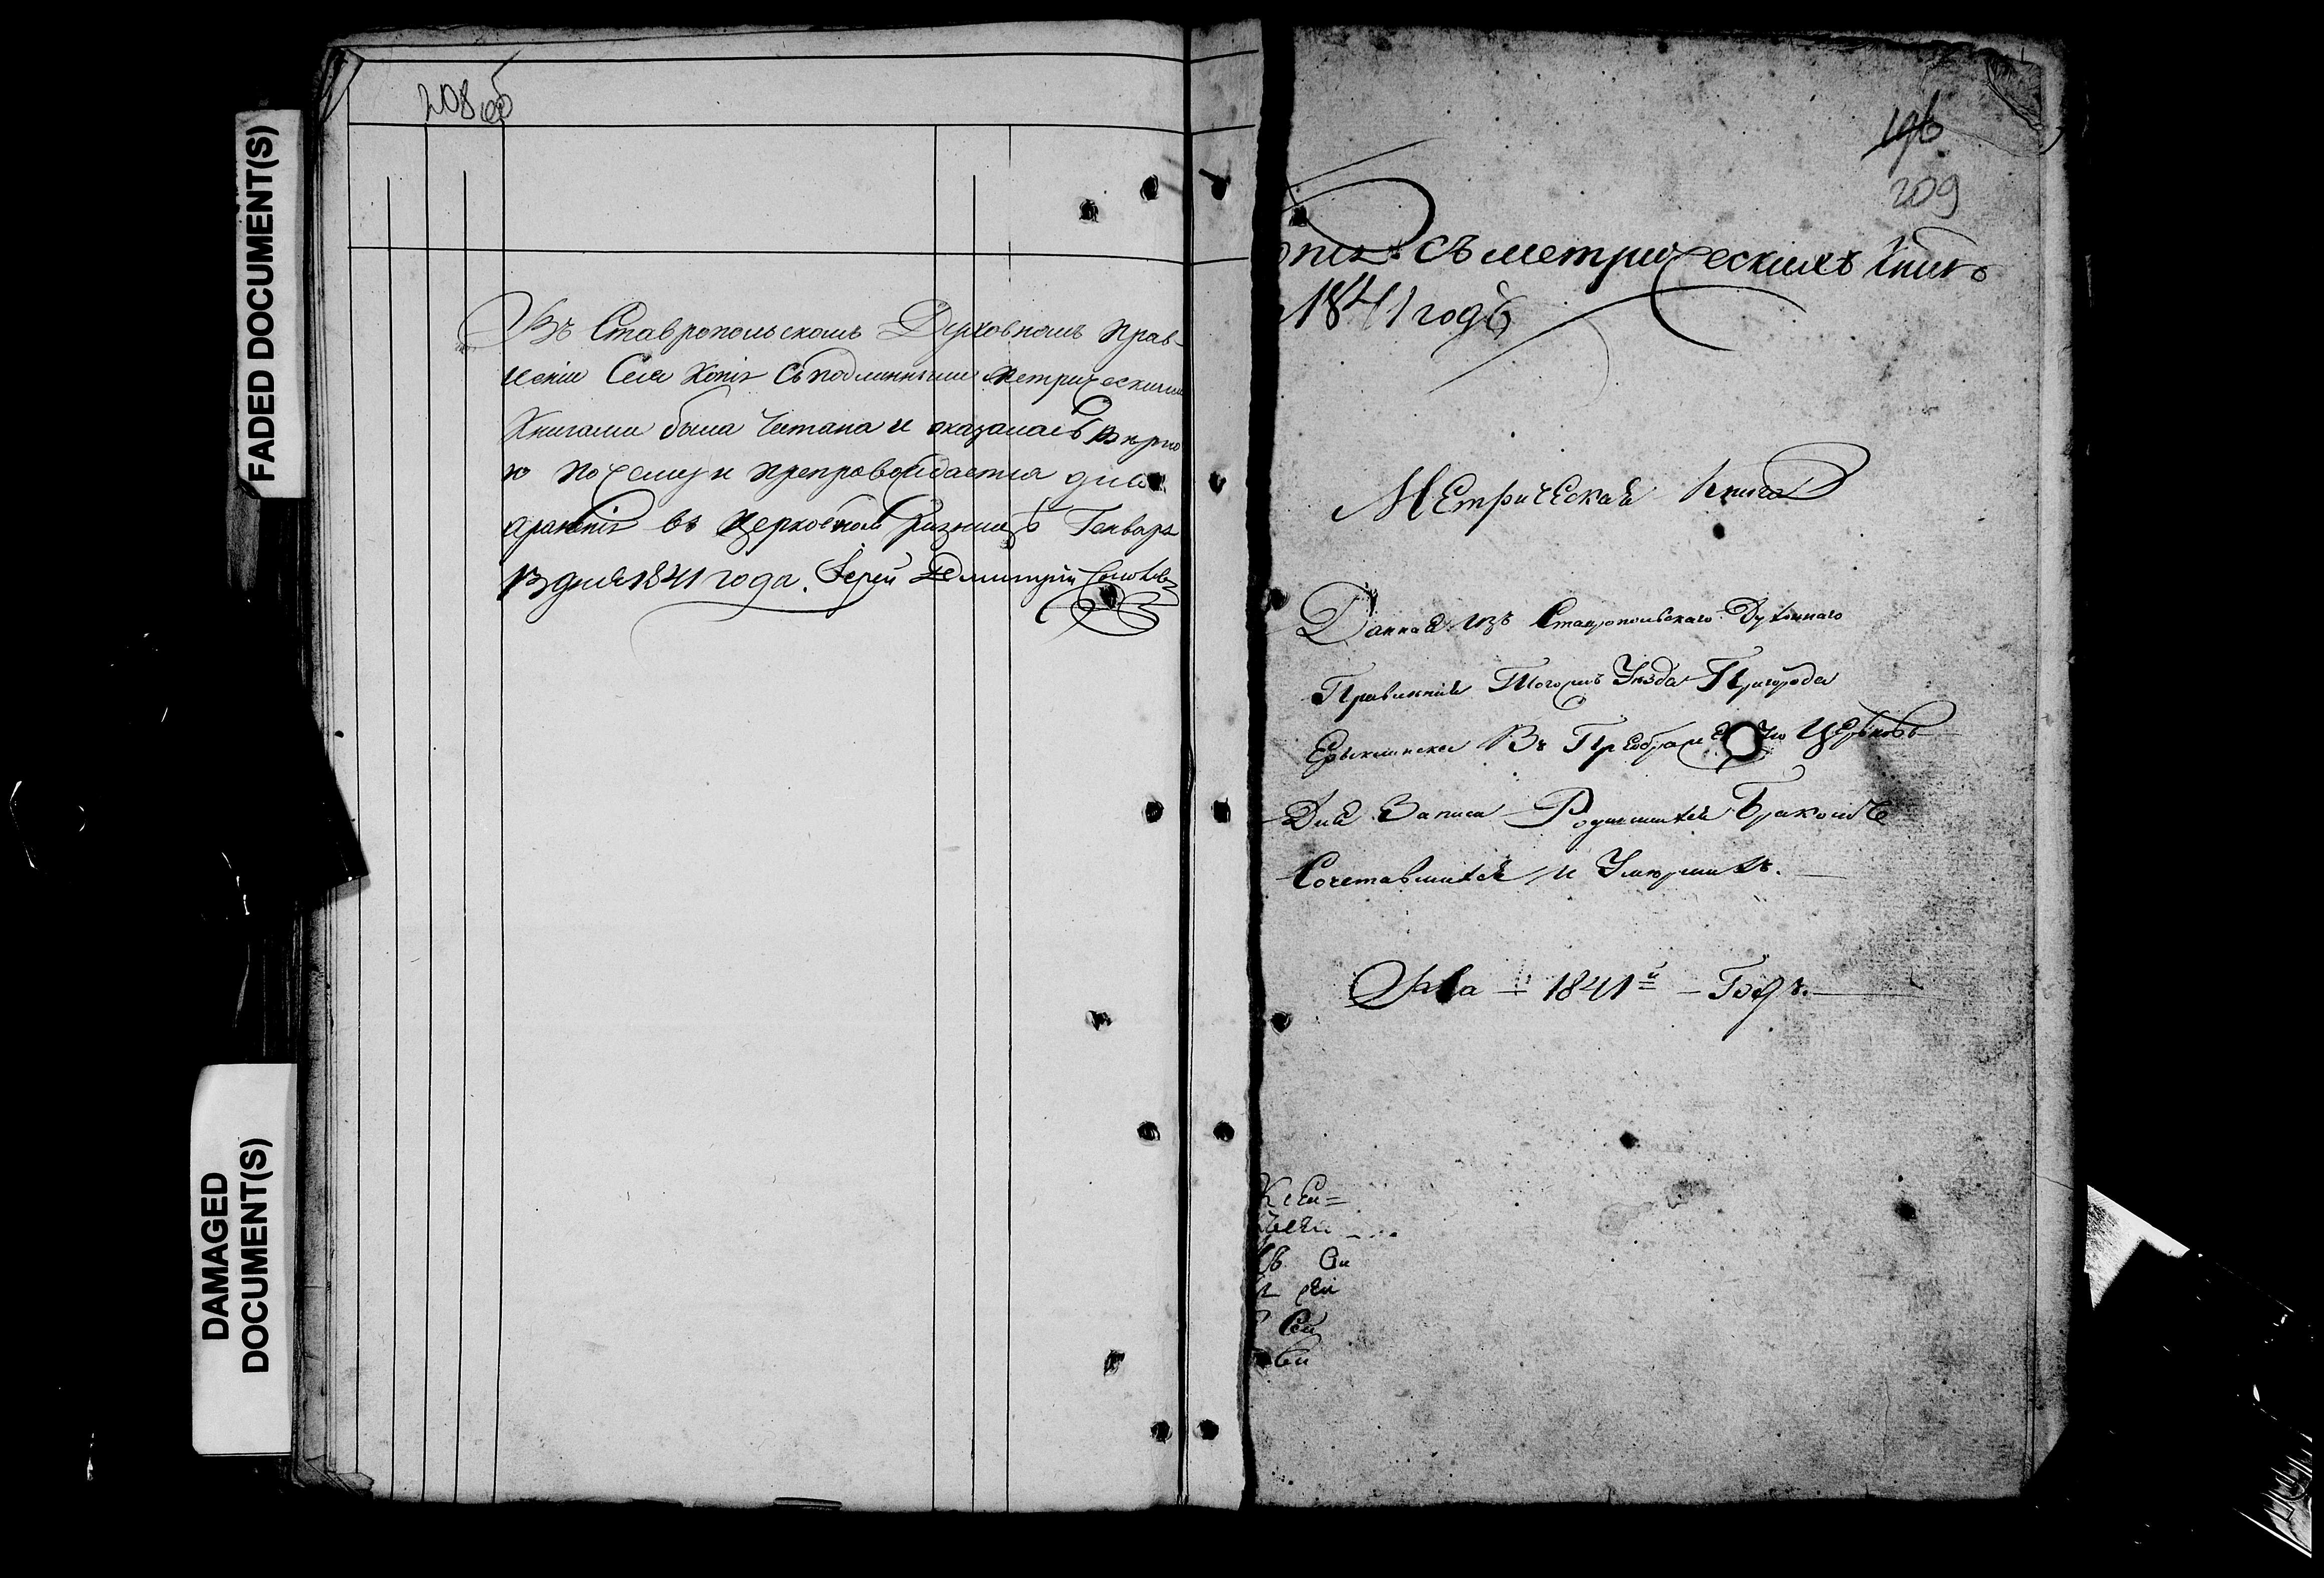 FADED DOCUMENT(S)
DAMAGED
DOCUMENT(S)
208 об
Въ Ставропольскомъ Духовномъ Прав-
леніи Сія Копія съ подлинными метрическими
Книгами была читана и оказалась верно
ю почему и препровождается для
храненія въ церковной ризнице Генваря
13 дня 1841 года. Іерей Димитрій
196
209
опія съ метрическихъ книгъ
1841 годъ
Метрическая Книга
Данная изъ Ставропольскаго Духовнаго
Правленія Тогожъ Уезда Пригорода
Ерыклинска Въ Церковь
Для Записи Родившихся Бракомъ
Сочетавшихся и Умершихъ.
На 1841й Годъ.